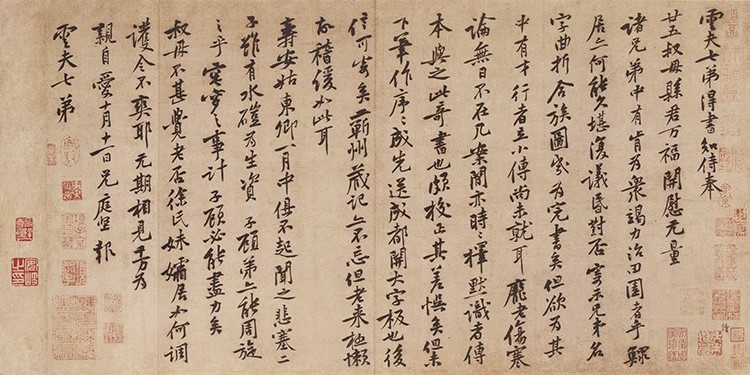 雲夫七弟得書知侍奉
廿五叔母縣君万福開慰无量
諸兄弟中有肯為衆竭力治田園者乎鰥
居亦何能久堪復議昏對否寄示兄弟名
字曲折合族圖幾為完書矣但欲為其
中有才行者立小傳尚未就耳龐老傷寒
論無日不在几案間亦時〻擇默識者傳
本與之此奇書也頗校正其差誤矣但未
下筆作序〻成先送成都開大字板也後
信可寄矣蘄州藏記亦不忘但老來極懶
故稽緩如此耳
壽安姑東卿一月中俱不起聞之悲塞二
子雖有水磑為生資子顧弟亦能周旋
之乎窀穸之事計子顧必能盡力矣
叔母不甚覺老否徐氏妹孀居如何調
護令不爽耶无期相見千万為
親自愛十月十一日兄庭堅報
雲夫七弟